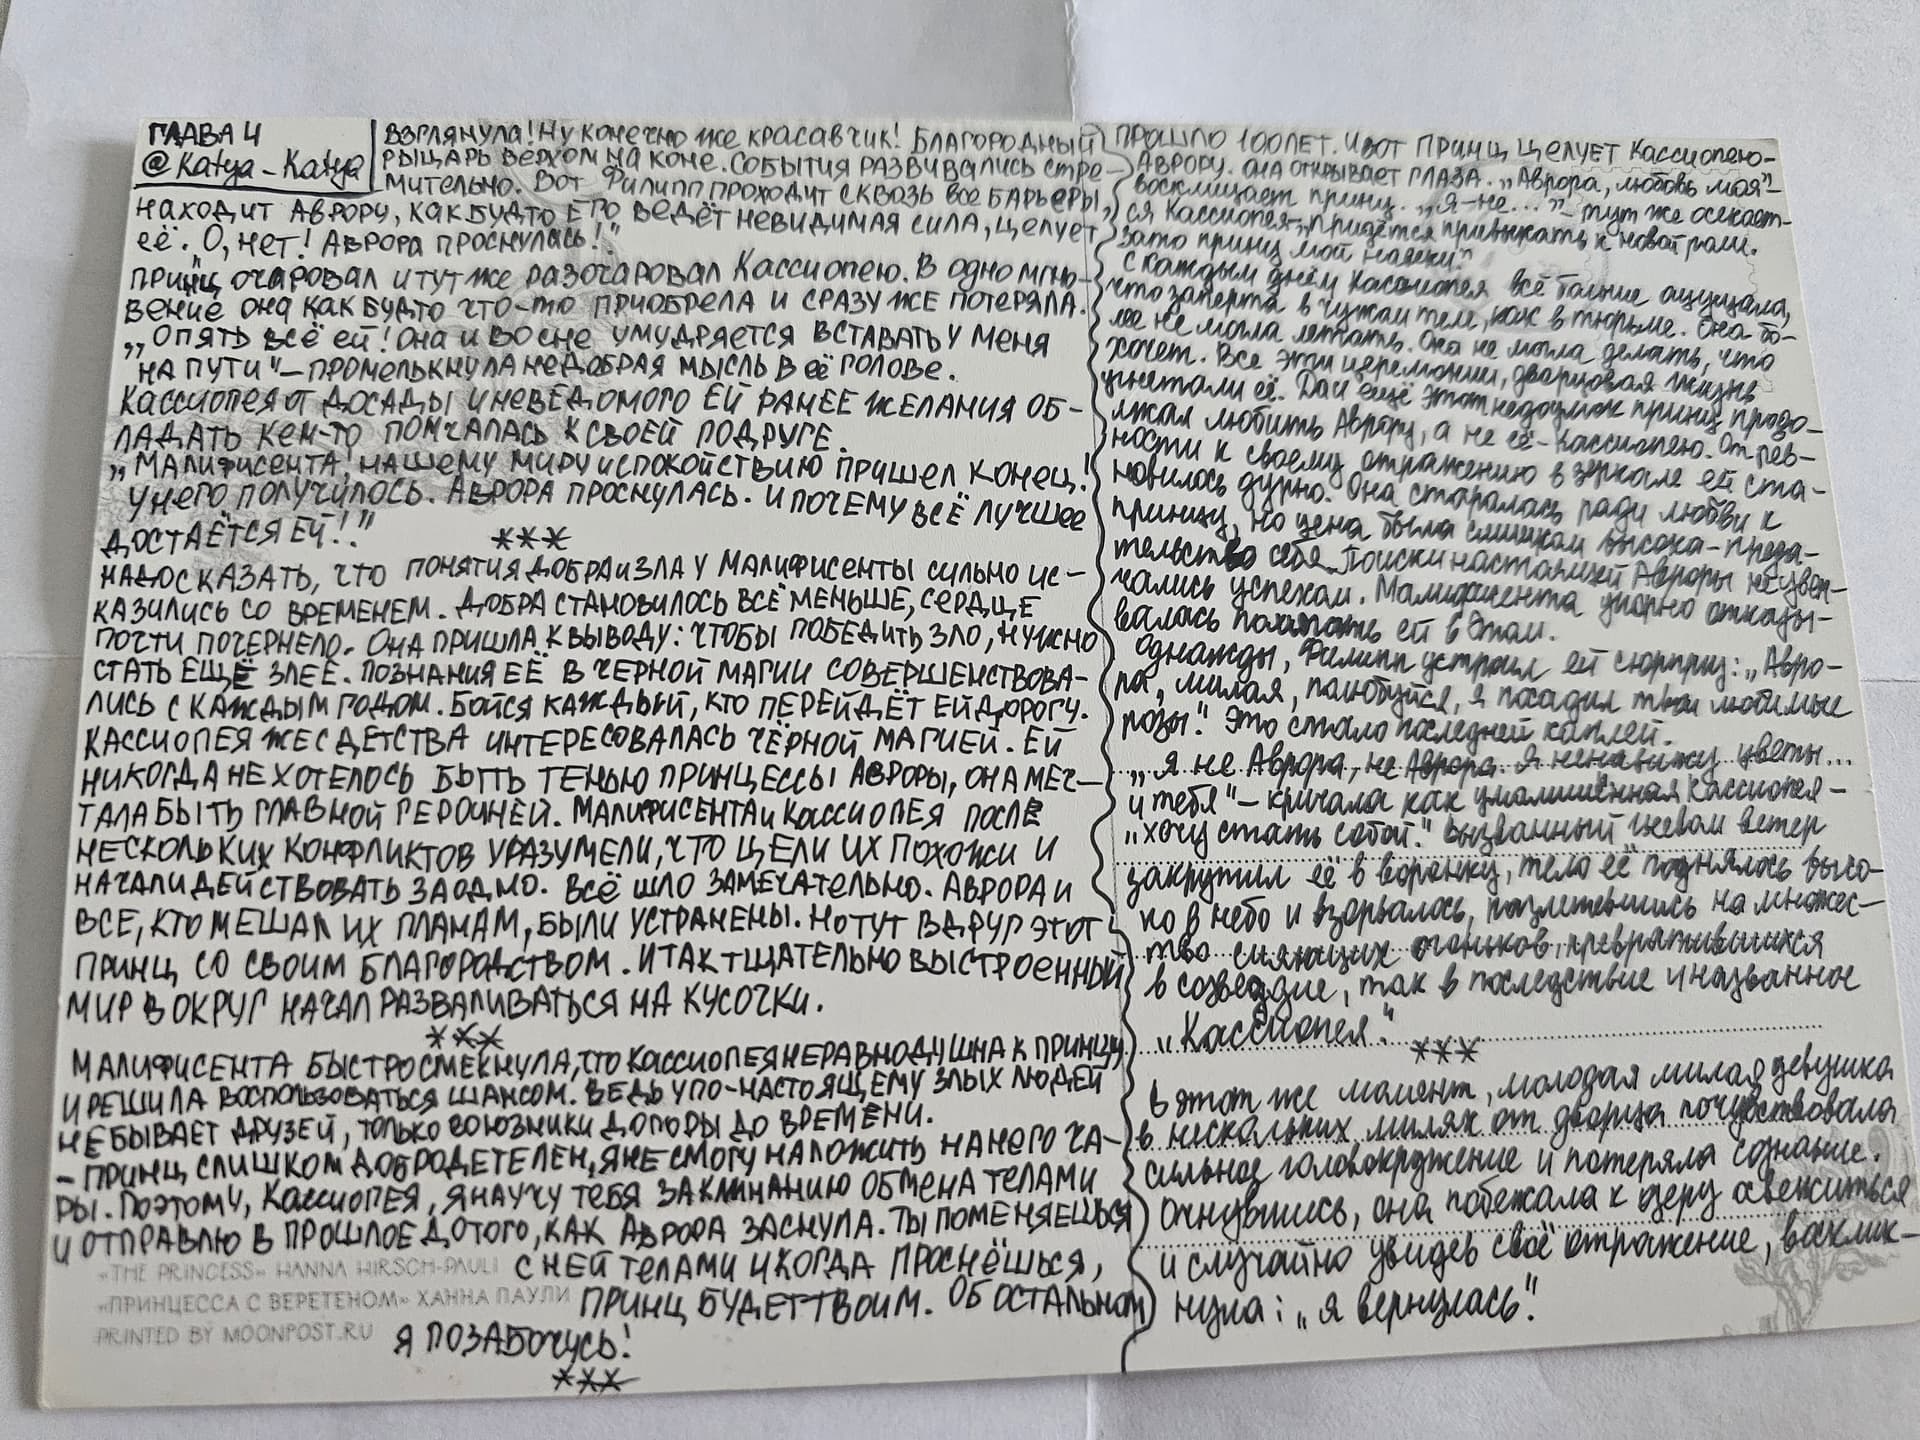 ГЛАВА 4
@Katya_Katya
ВЗГЛЯНУЛА! НУ КОНЕЧНО ЖЕ КРАСАВЧИК! БЛАГОРОДНЫЙ
РЫЦАРЬ ВЕРХОМ НА КОНЕ. СОБЫТИЯ РАЗВИВАЛИСЬ СТРЕ-
МИТЕЛЬНО. ВОТ ФИЛИПП ПРОХОДИТ СКВОЗЬ ВСЕ БАРЬЕРЫ,
НАХОДИТ АВРОРУ, КАК БУДТО ЕГО ВЕДЁТ НЕВИДИМАЯ СИЛА, ЦЕЛУЕТ
ЕЁ. О, НЕТ! АВРОРА ПРОСНУЛАСЬ!"
ПРИНЦ ОЧАРОВАЛ И ТУТ ЖЕ РАЗОЧАРОВАЛ КАССИОПЕЮ. В ОДНО МГНО-
ВЕНИЕ ОНА КАК БУДТО ЧТО-ТО ПРИОБРЕЛА И СРАЗУ ЖЕ ПОТЕРЯЛА.
„ОПЯТЬ ВСЁ ЕЙ! ОНА И ВО СНЕ УМУДРЯЕТСЯ ВСТАВАТЬ У МЕНЯ
НА ПУТИ" – ПРОМЕЛЬКНУЛА НЕДОБРАЯ МЫСЛЬ В ЕЁ ГОЛОВЕ.
КАССИОПЕЯ ОТ ДОСАДЫ И НЕВЕДОМОГО ЕЙ РАНЕЕ ЖЕЛАНИЯ ОБ-
ЛАДАТЬ КЕМ-ТО ПОМЧАЛАСЬ К СВОЕЙ ПОДРУГЕ.
„МАЛИФИСЕНТА, НАШЕМУ МИРУ И СПОКОЙСТВИЮ ПРИШЕЛ КОНЕЦ!
У НЕГО ПОЛУЧИЛОСЬ. АВРОРА ПРОСНУЛАСЬ. И ПОЧЕМУ ВСЁ ЛУЧШЕЕ
ДОСТАЁТСЯ ЕЙ!!"
***
НАДО СКАЗАТЬ, ЧТО ПОНЯТИЯ ДОБРА И ЗЛА У МАЛИФИСЕНТЫ СИЛЬНО ИС-
КАЗИЛИСЬ СО ВРЕМЕНЕМ. ДОБРА СТАНОВИЛОСЬ ВСЁ МЕНЬШЕ, СЕРДЦЕ
ПОЧТИ ПОЧЕРНЕЛО. ОНА ПРИШЛА К ВЫВОДУ: ЧТОБЫ ПОБЕДИТЬ ЗЛО, НУЖНО
СТАТЬ ЕЩЁ ЗЛЕЕ. ПОЗНАНИЯ ЕЁ В ЧЕРНОЙ МАГИИ СОВЕРШЕНСТВОВА-
ЛИСЬ С КАЖДЫМ ГОДОМ. БОЙСЯ КАЖДЫЙ, КТО ПЕРЕЙДЁТ ЕЙ ДОРОГУ.
КАССИОПЕЯ ЖЕ С ДЕТСТВА ИНТЕРЕСОВАЛАСЬ ЧЁРНОЙ МАГИЕЙ. ЕЙ
НИКОГДА НЕ ХОТЕЛОСЬ БЫТЬ ТЕНЬЮ ПРИНЦЕССЫ АВРОРЫ, ОНА МЕЧ-
ТАЛА БЫТЬ ГЛАВНОЙ ГЕРОИНЕЙ. МАЛИФИСЕНТА И КАССИОПЕЯ ПОСЛЕ
НЕСКОЛЬКИХ КОНФЛИКТОВ УРАЗУМЕЛИ, ЧТО ЦЕЛИ ИХ ПОХОЖИ И
НАЧАЛИ ДЕЙСТВОВАТЬ ЗАОДНО. ВСЁ ШЛО ЗАМЕЧАТЕЛЬНО. АВРОРА И
ВСЕ, КТО МЕШАЛ ИХ ПЛАНАМ, БЫЛИ УСТРАНЕНЫ. НО ТУТ ВДРУГ ЭТОТ
ПРИНЦ СО СВОИМ БЛАГОРОДСТВОМ. И ТАК ТЩАТЕЛЬНО ВЫСТРОЕННЫЙ
МИР ВОКРУГ НАЧАЛ РАЗВАЛИВАТЬСЯ НА КУСОЧКИ.
***
МАЛИФИСЕНТА БЫСТРО СМЕКНУЛА, ЧТО КАССИОПЕЯ НЕРАВНОДУШНА К ПРИНЦУ
И РЕШИЛА ВОСПОЛЬЗОВАТЬСЯ ШАНСОМ. ВЕДЬ У ПО-НАСТОЯЩЕМУ ЗЛЫХ ЛЮДЕЙ
НЕ БЫВАЕТ ДРУЗЕЙ, ТОЛЬКО СОЮЗНИКИ ДО ПОРЫ ДО ВРЕМЕНИ.
– ПРИНЦ СЛИШКОМ ДОБРОДЕТЕЛЕН, Я НЕ СМОГУ НАЛОЖИТЬ НА НЕГО ЧА-
РЫ. ПОЭТОМУ, КАССИОПЕЯ, Я НАУЧУ ТЕБЯ ЗАКЛИНАНИЮ ОБМЕНА ТЕЛАМИ
И ОТПРАВЛЮ В ПРОШЛОЕ ДО ТОГО, КАК АВРОРА ЗАСНУЛА. ТЫ ПОМЕНЯЕШЬСЯ
С НЕЙ ТЕЛАМИ И КОГДА ПРОСНЁШЬСЯ,
ПРИНЦ БУДЕТ ТВОИМ. ОБ ОСТАЛЬНОМ
Я ПОЗАБОЧУСЬ!
***
«THE PRINCESS» HANNA HIRSCH-PAULI
«ПРИНЦЕССА С ВЕРЕТЕНОМ» ХАННА ПАУЛИ
PRINTED BY MOONPOST.RU
ПРОШЛО 100 ЛЕТ. И ВОТ ПРИНЦ ЦЕЛУЕТ КАССИОПЕЮ-
АВРОРУ. ОНА ОТКРЫВАЕТ ГЛАЗА. „Аврора, любовь моя" –
восклицает принц. „Я – не..." – тут же осекает-
ся Кассиопея, – „придётся привыкать к новой роли.
Зато принц мой навеки."
С каждым днём Кассиопея всё больше ощущала,
что заперта в чужом теле, как в тюрьме. Она бо-
лее не могла летать. Она не могла делать, что
хочет. Все эти церемонии, дворцовая жизнь
угнетали её. Да и ещё этот недоумок принц продо-
лжал любить Аврору, а не её – Кассиопею. От рев-
ности к своему отражению в зеркале ей ста-
новилось дурно. Она старалась ради любви к
принцу, но цена была слишком высока – преда-
тельство себя. Поиски настоящей Авроры не увен-
чались успехом. Малифисента упорно отказы-
валась помогать ей в этом.
Однажды, Филипп устроил ей сюрприз: „Авро-
ра, милая, полюбуйся, я посадил твои любимые
розы". Это стало последней каплей.
„Я не Аврора, не Аврора. Я ненавижу цветы...
и тебя" – кричала как умалишённая Кассиопея –
„хочу стать собой". Вызванный гневом ветер
закрутил её в воронку, тело её поднялось высо-
ко в небо и взорвалось, разлетевшись на множес-
тво сияющих огоньков, превратившихся
в созвездие, так в последствие и названное
„Кассиопея".
***
В этот же момент, молодая милая девушка
в нескольких милях от дворца почувствовала
сильное головокружение и потеряла сознание.
Очнувшись, она побежала к озеру освежиться
и случайно увидев своё отражение, воскликнула:
нула: „Я вернулась".